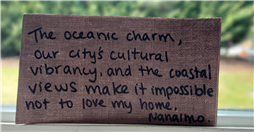 The oceanic charm,
our city's cultural
vibrancy, and the coastal
views make it impossible
not to love my home,
Nanaimo.